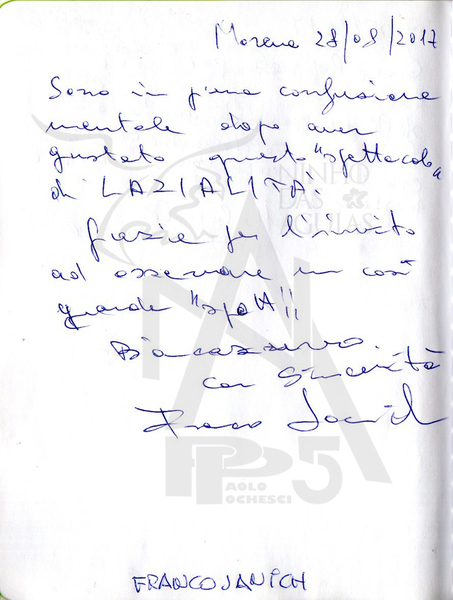 Morena 28/08/2017
Sono in piena confusione
mentale dopo aver
gustato questo "spettacolo"
di LAZIALITÀ!
Grazie per l'invito
ad osservare un così
grande "spett!!
Biancazzurro
con sincerità
Franco Janich
NINHO
DAS
AGUIAS
PP5
AOLO
OCHESCI
FRANCO JANICH